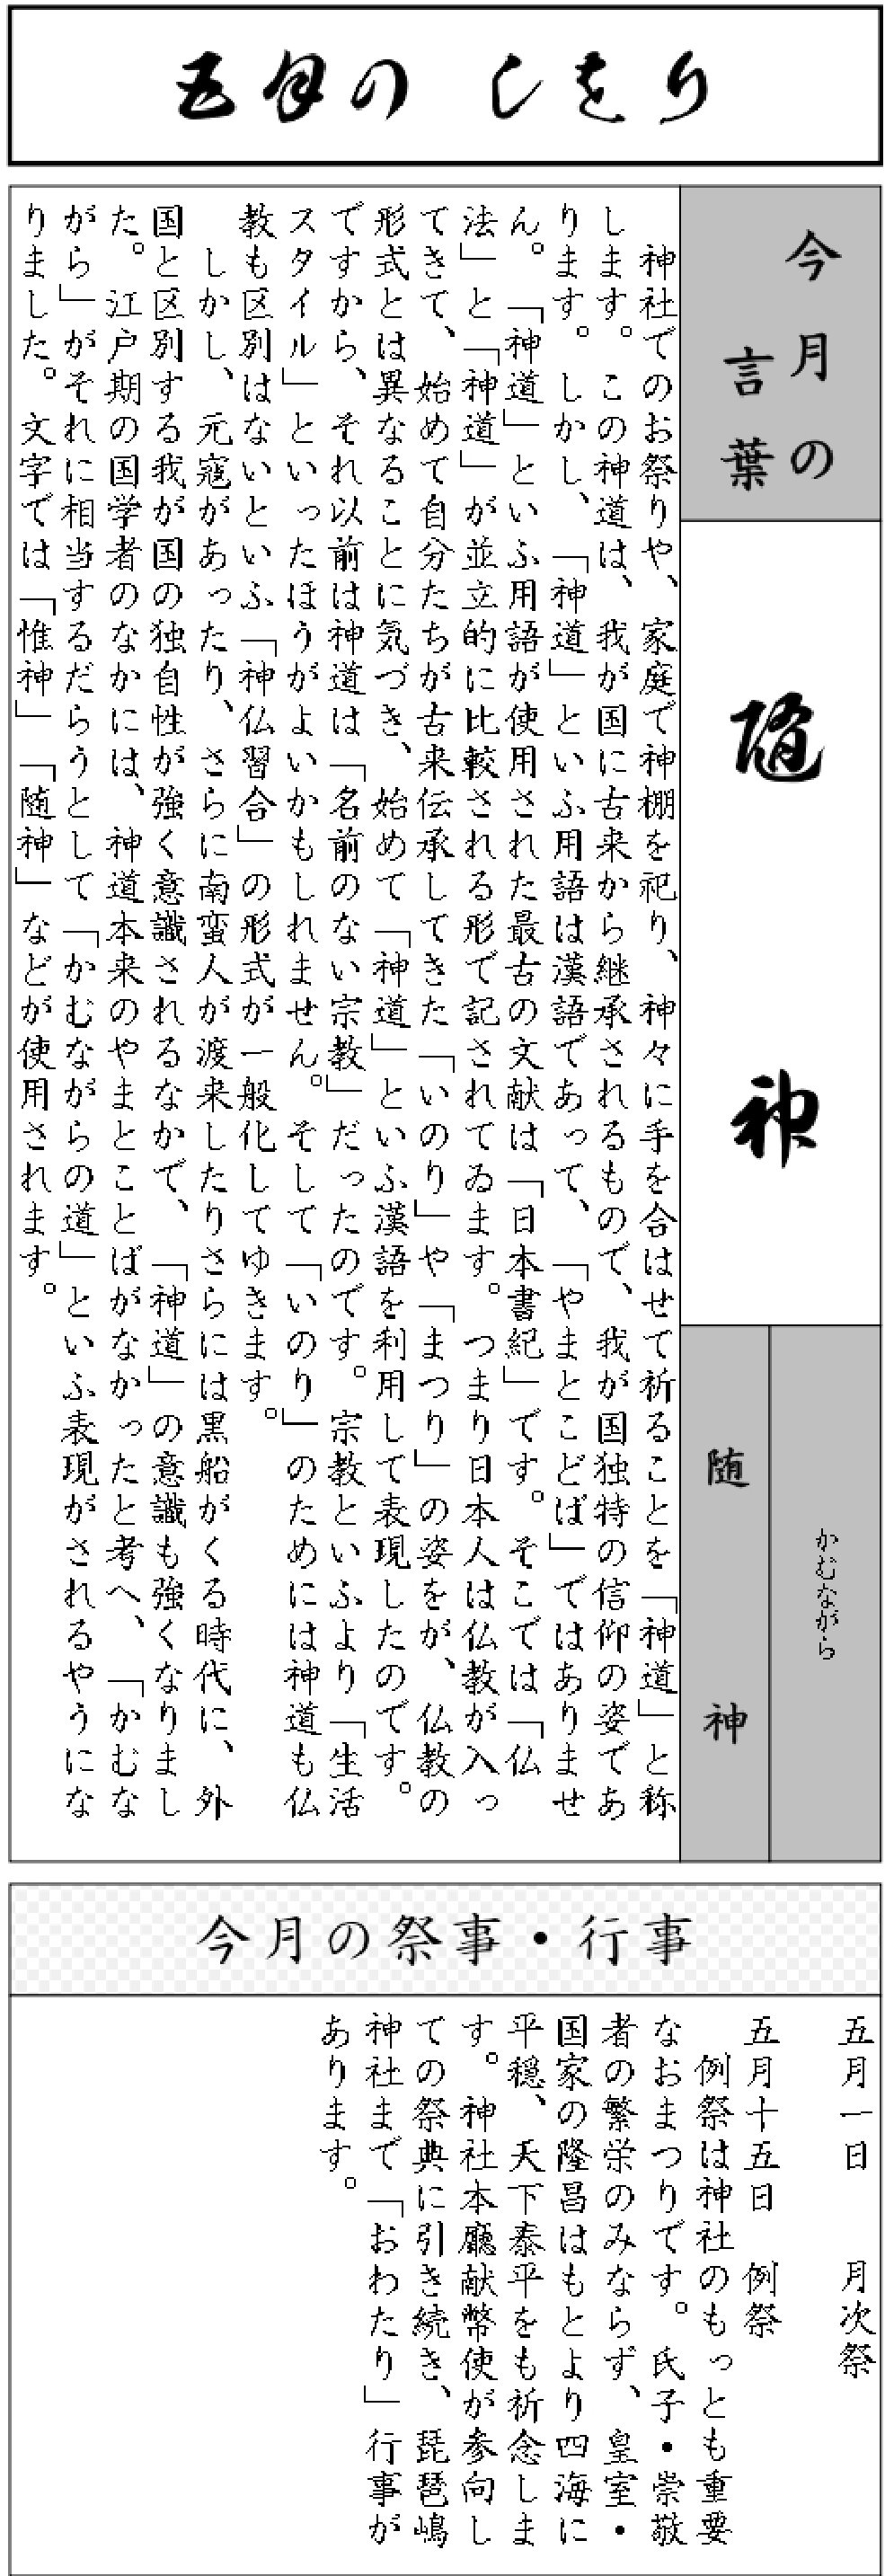 五月の しをり
今月の
言葉
随神
かむながら
随神
神社でのお祭りや、家庭で神棚を祀り、神々に手を合はせて祈ることを「神道」と称
します。この神道は、我が国に古来から継承されるもので、我が国独特の信仰の姿であ
ります。しかし、「神道」といふ用語は漢語であって、「やまとこどば」ではありませ
ん。「神道」といふ用語が使用された最古の文献は「日本書紀」です。そこでは「仏
法」と「神道」が並立的に比較される形で記されてゐます。つまり日本人は仏教が入っ
てきて、始めて自分たちが古来伝承してきた「いのり」や「まつり」の姿をが、仏教の
形式とは異なることに気づき、始めて「神道」といふ漢語を利用して表現したのです。
ですから、それ以前は神道は「名前のない宗教」だったのです。宗教といふより「生活
スタイル」といったほうがよいかもしれません。そして「いのり」のためには神道も仏
教も区別はないといふ「神仏習合」の形式が一般化してゆきます。
しかし、元寇があったり、さらに南蛮人が渡来したりさらには黒船がくる時代に、外
国と区別する我が国の独自性が強く意識されるなかで、「神道」の意識も強くなりまし
た。江戸期の国学者のなかには、神道本来のやまとことばがなかったと考へ、「かむな
がら」がそれに相当するだらうとして「かむながらの道」といふ表現がされるやうにな
りました。文字では「惟神」「随神」などが使用されます。
今月の祭事・行事
五月一日 月次祭
五月十五日 例祭
例祭は神社のもっとも重要
なおまつりです。氏子・崇敬
者の繁栄のみならず、皇室・
国家の隆昌はもとより四海に
平穏、天下泰平をも祈念しま
す。神社本廳献幣使が参向し
ての祭典に引き続き、琵琶嶋
神社まで「おわたり」行事が
あります。